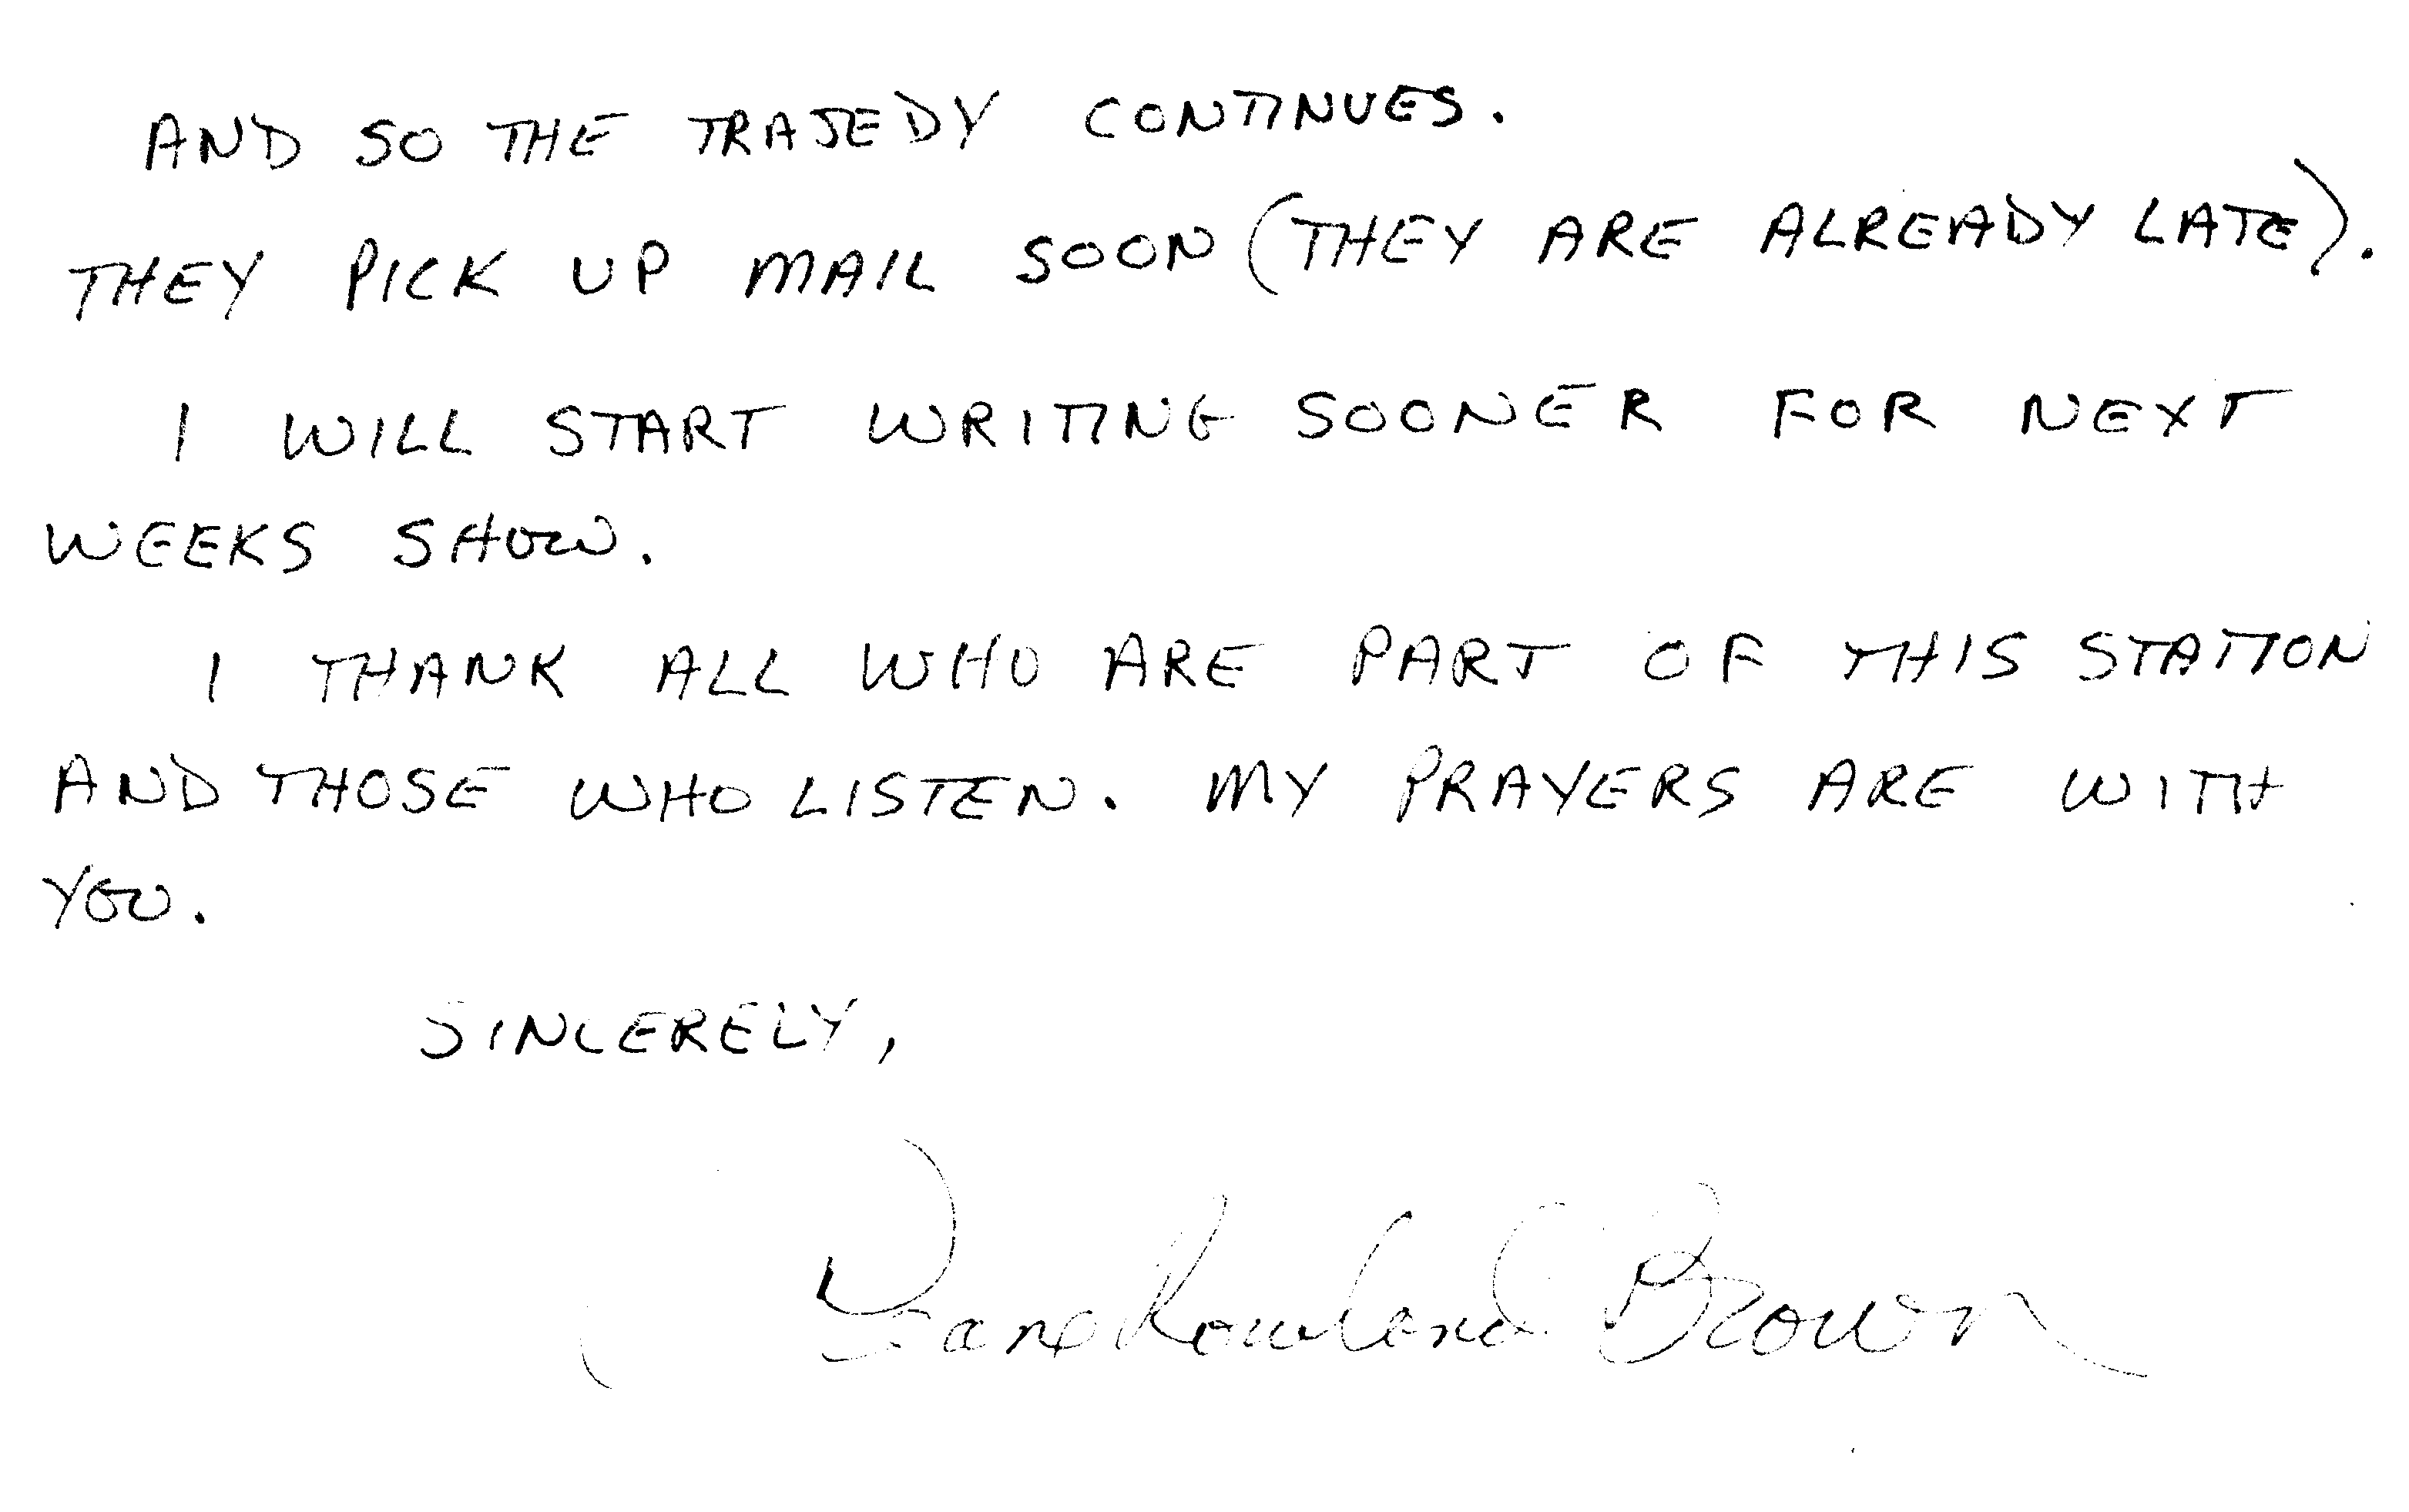 AND SO THE TRAJEDY CONTINUES.
THEY PICK UP MAIL SOON (THEY ARE ALREADY LATE).
I WILL START WRITING SOONER FOR NEXT
WEEKS SHOW.
I THANK ALL WHO ARE PART OF THIS STATION
AND THOSE WHO LISTEN. MY PRAYERS ARE WITH
YOU.
SINCERELY,
Rowland Brown